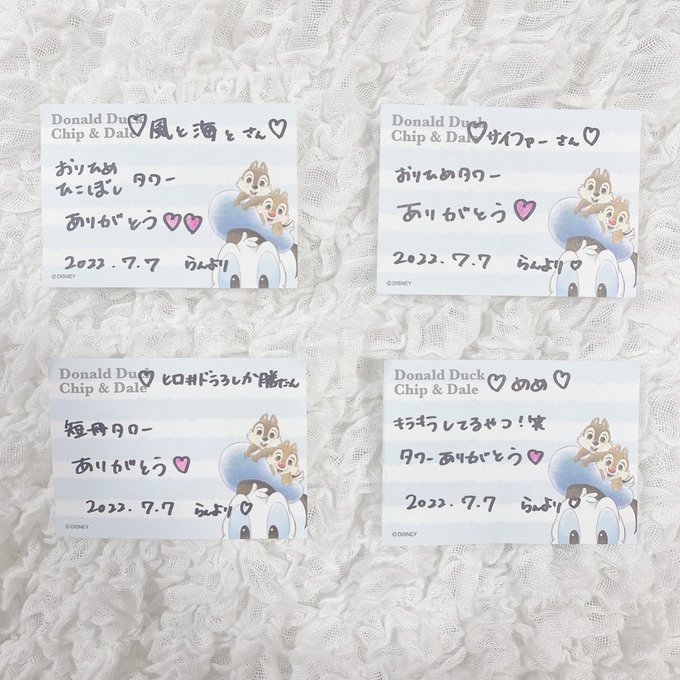 Donald Duck
Chip & Dale
♡風と海とさん♡
おりひめ
ひこぼし タワー
ありがとう♡♡
2022.7.7 らんより
©DISNEY
Donald Duck
Chip & Dale
♡サイファーさん♡
おりひめタワー
ありがとう♡
2022.7.7 らんより♡
©DISNEY
Donald Duck
Chip & Dale
♡ヒロ#ドラろしか勝たん
短冊タワー
ありがとう♡
2022.7.7 らんより♡
©DISNEY
Donald Duck
Chip & Dale
♡めめ♡
キラキラしてるやつ!笑
タワーありがとう♡
2022.7.7 らんより♡
©DISNEY